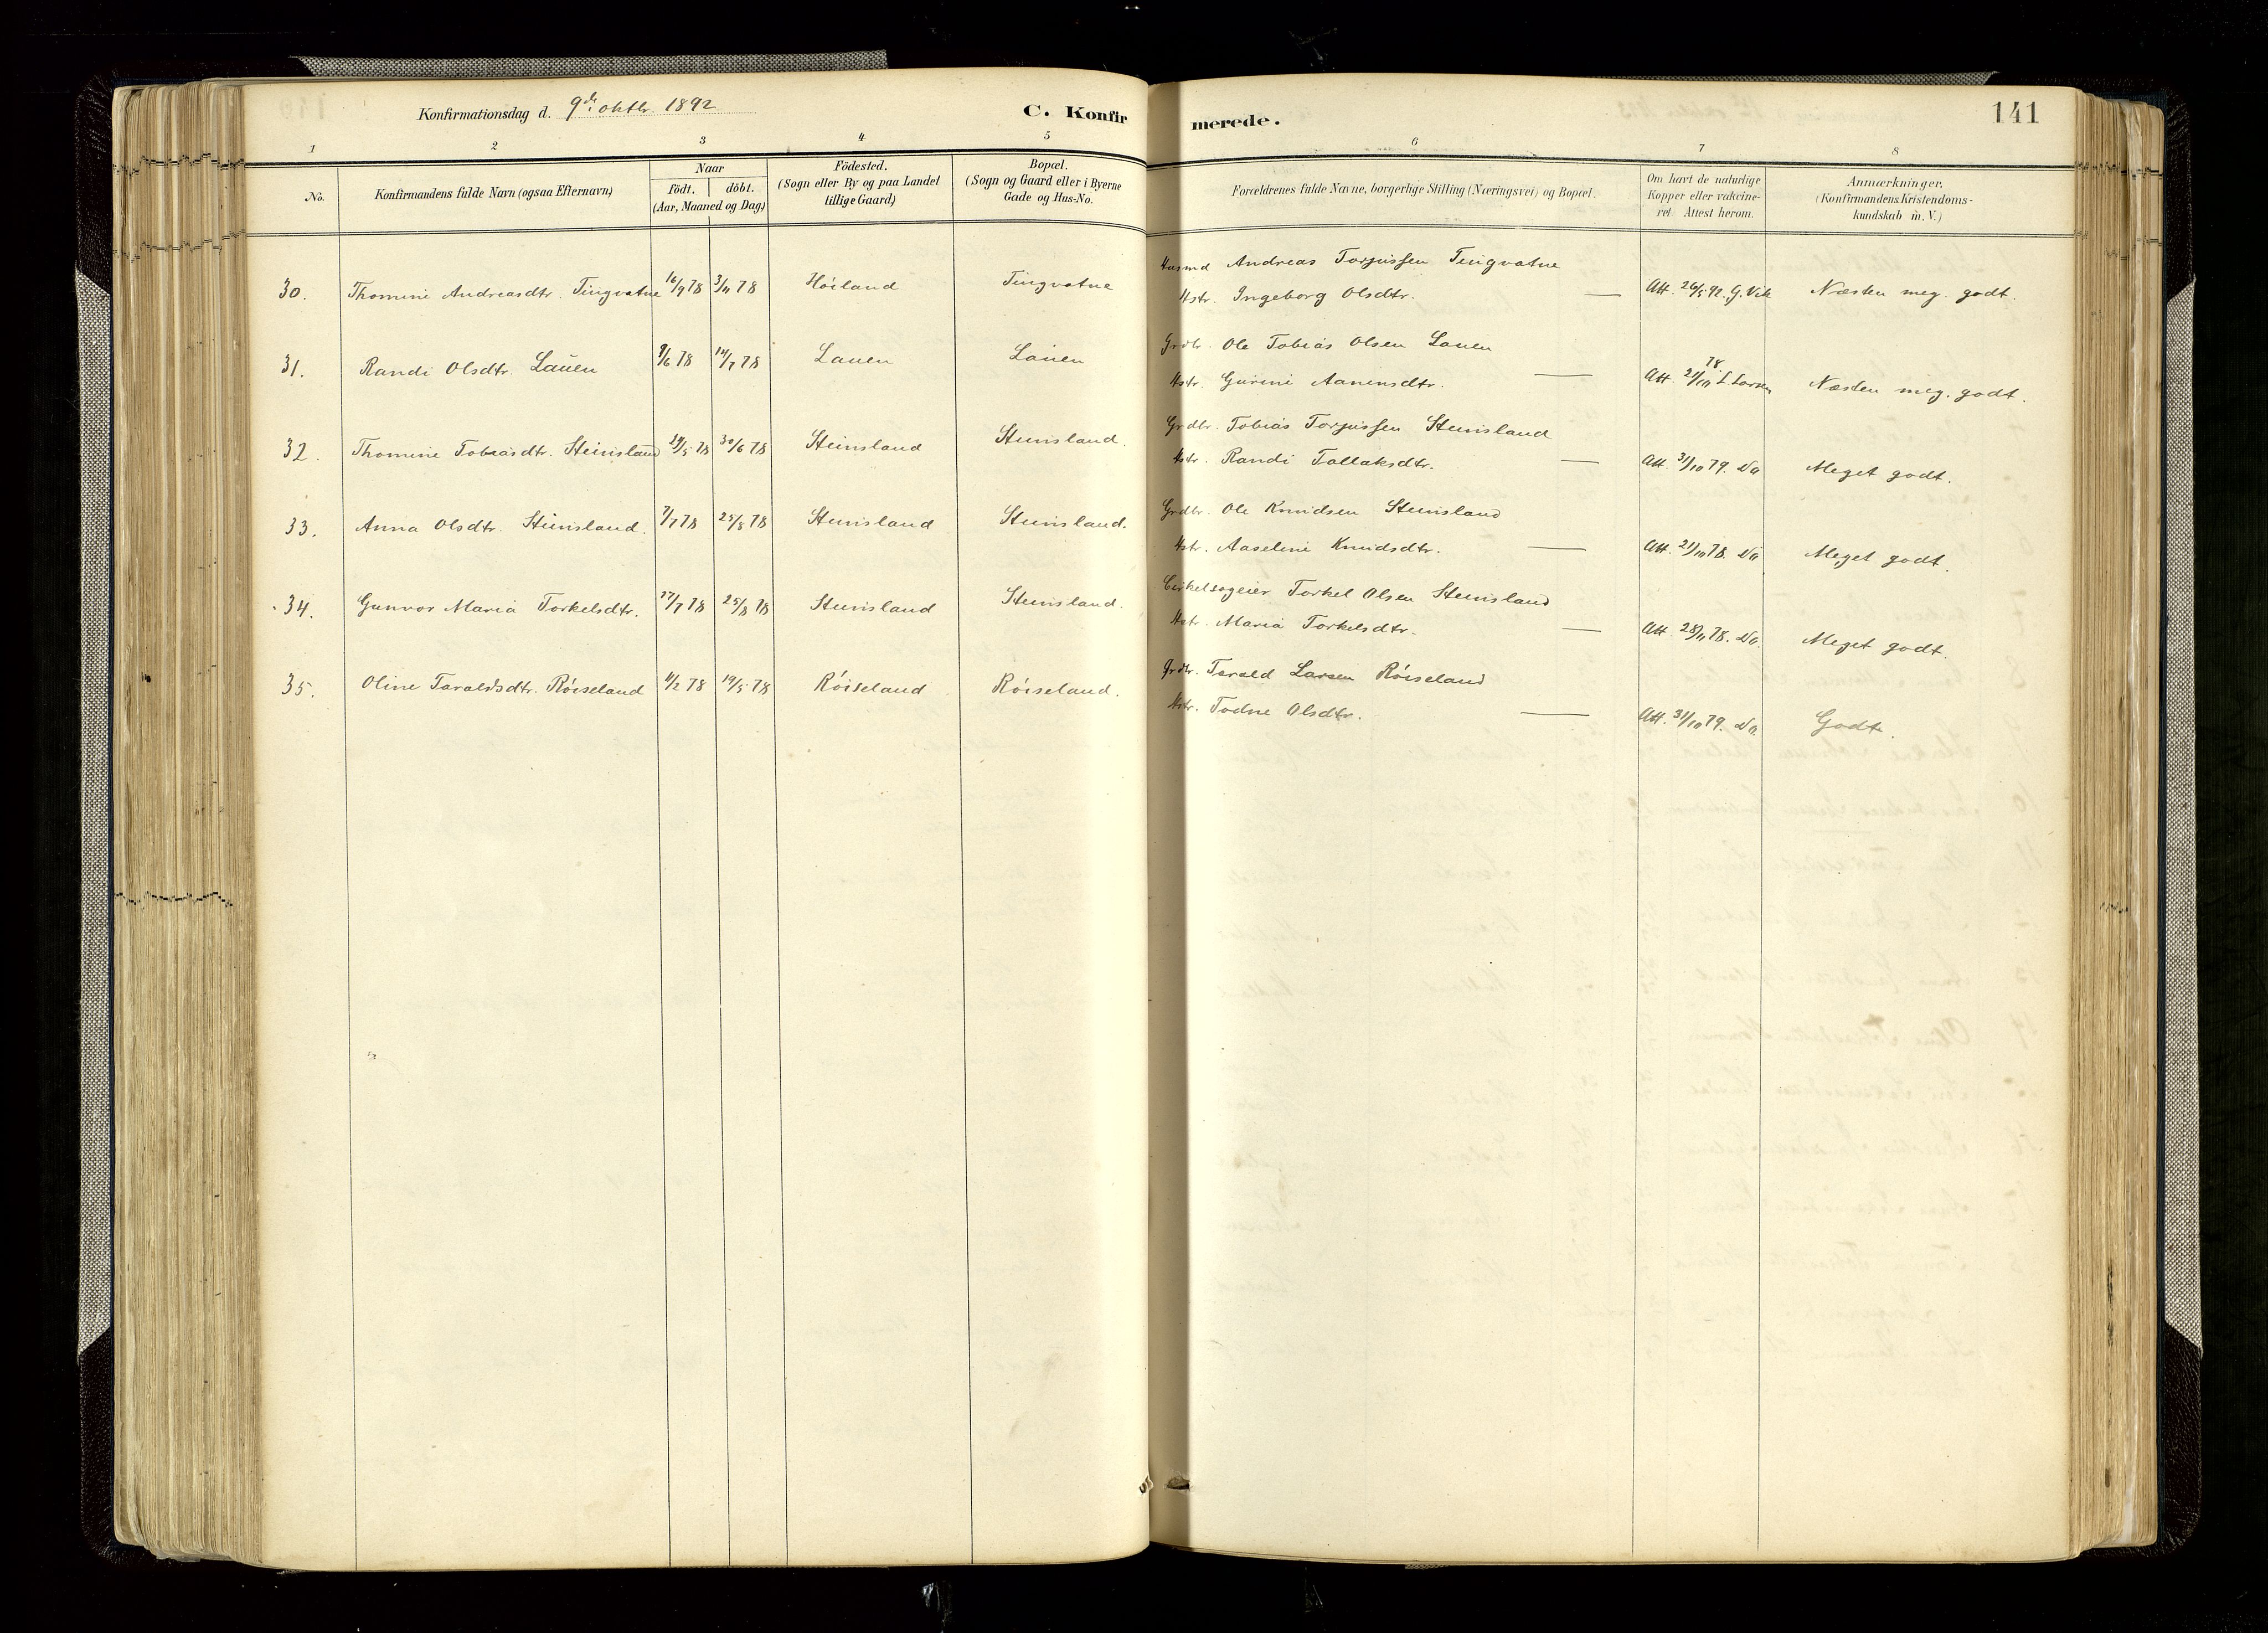 Konfirmationsdag d. 9de oktbr. 1892
C. Konfirmerede.
141
1 2 3 4 5 6 7 8
No.
Konfirmandens fulde Navn (ogsaa Efternavn)
Naar
födt. döbt.
(Aar, Maaned og Dag)
Födested.
(Sogn eller By og paa Landet
tillige Gaard)
Bopæl.
(Sogn og Gaard eller i Byerne
Gade og Hus-No.
Forældrenes fulde Navne, borgerlige Stilling (Næringsvei) og Bopæl.
Om havt de naturlige
Kopper eller vakcine-
ret. Attest herom.
Anmærkninger.
(Konfirmandens Kristendoms-
kundskab m. V.)
30. Thomine Andreasdtr. Tingvatne 16/9 78 3/11 78 Höiland Tingvatne Husmd Andreas Torjussen Tingvatne
Hstr. Ingeborg Olsdtr. — Att. 26/5 92. G. Vik Næsten meg. godt.
31. Randi Olsdtr. Lauen 9/6 78 14/7 78 Lauen Lauen Grdbr. Ole Tobias Olsen Lauen
Hstr. Gurine Aanensdtr. — Att. 21/10 78 L. Larsen Næsten meg. godt.
32. Thomine Tobiasdtr. Steinsland 29/5 78 30/6 78 Steinsland Steinsland. Grdbr. Tobias Torjussen Steinsland
Hstr. Randi Tallaksdtr. — Att. 31/10 79. Do Meget godt.
33. Anna Olsdtr. Steinsland. 7/7 78 25/8 78 Steinsland Steinsland. Grdbr. Ole Knudsen Steinsland
Hstr. Aaseline Knudsdtr. — Att. 21/10 78. Do Meget godt.
34. Gunvor Maria Torkelsdtr. 27/7 78 25/8 78 Steinsland Steinsland. Cirkelsageier Torkel Olsen Steinsland
Hstr. Maria Torkelsdtr. — Att. 28/11 78. Do. Meget godt.
35. Oline Taraldsdtr. Röiseland 11/2 78 19/5 78 Röiseland Röiseland. Grdbr. Tarald Larsen Röiseland
Hstr. Todne Olsdtr. — Att. 31/10 79. Do. Godt.